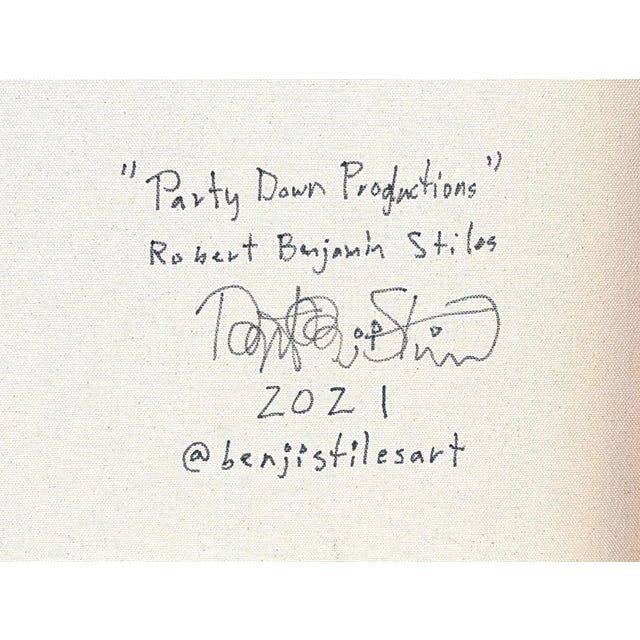 "Party Down Productions"
Robert Benjamin Stiles
2021
@benjistilesart